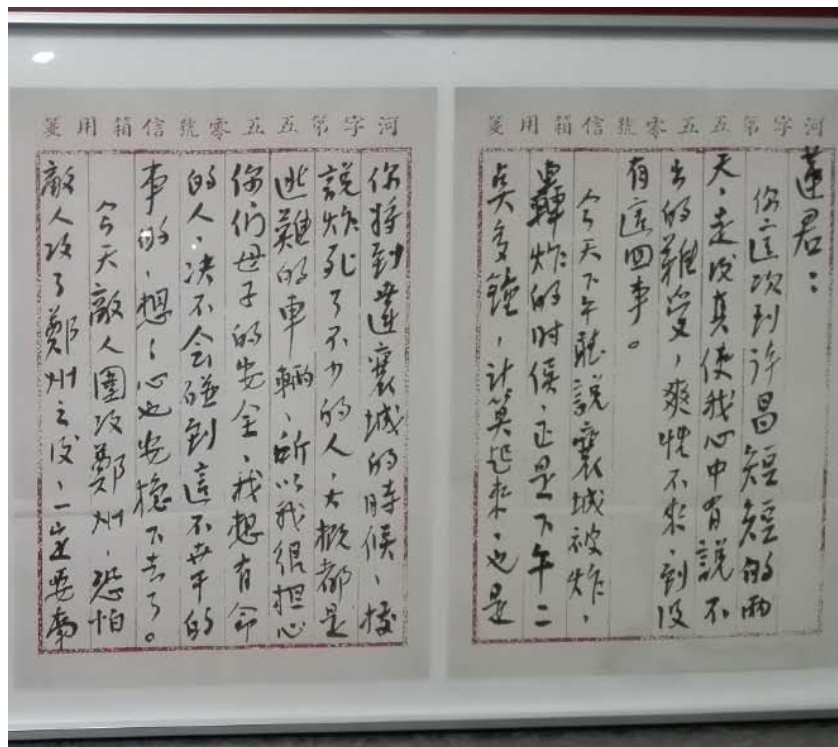 河字第五五零號信箱用箋
蓮君：
你這次到许昌短短的兩
天，走後真使我心中有說不
出的難受，爽性不來，到沒
有這回事。
今天下午聽說襄城被炸，
轟炸的时候，正是下午二
点多鐘，计算起来，也是
河字第五五零號信箱用箋
你将到達襄城的時候，据
說炸死了不少的人，大概都是
逃難的車輛，所以我很担心
你们母子的安全，我想有命
的人，决不会碰到這不幸的
事的，想想心也安穩下去了。
今天敵人圍攻鄭州，恐怕
敵人攻了鄭州之後，一定要南